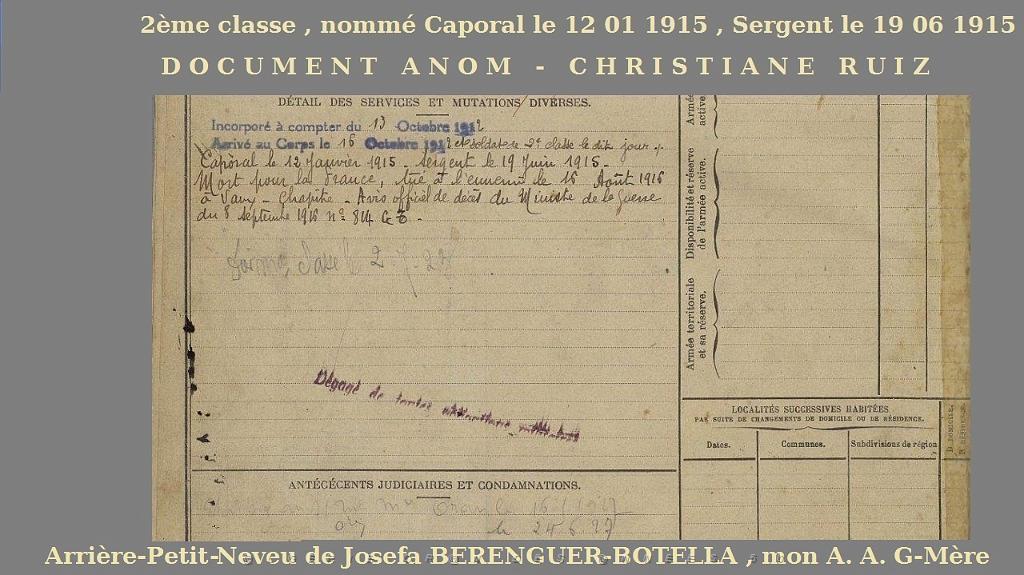 2ème classe , nommé Caporal le 12 01 1915 , Sergent le 19 06 1915
DOCUMENT ANOM - CHRISTIANE RUIZ
DÉTAIL DES SERVICES ET MUTATIONS DIVERSES.
Incorporé à compter du 13 Octobre 1912
Arrivé au Corps le 16 Octobre 1912 et soldat de 2e classe le dit jour.
Caporal le 12 Janvier 1915 - Sergent le 19 Juin 1915 -
Mort pour la France, tué à l'ennemi le 16 Août 1916
à Vaux - Chapitre - Avis officiel de décès du Ministre de la Guerre
du 8 septembre 1916 n°
Dégagé de toutes
ANTÉCÉDENTS JUDICIAIRES ET CONDAMNATIONS.
Armée active.
Disponibilité et réserve de l'armée active.
Armée territoriale et sa réserve.
LOCALITÉS SUCCESSIVES HABITÉES
PAR SUITE DE CHANGEMENTS DE DOMICILE OU DE RÉSIDENCE.
Dates. Communes. Subdivisions de région
Arrière-Petit-Neveu de Josefa BERENGUER-BOTELLA , mon A. A. G-Mère